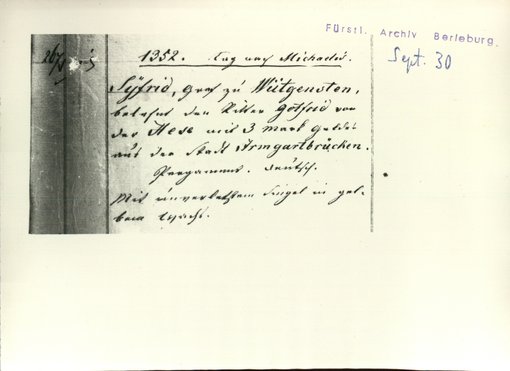 Fürstl. Archiv Berleburg.
Sept. 30
1352. Tag nach Michaelis.
Syfrid, Graf zu Wittgensten,
belehnt den Ritter Gotfrid von
der Hese mit 3 Mark Geldes
aus der Stadt Irmgartbrücken.
Pergament. Deutsch.
Mit unverletztem Siegel in gel-
bem Wachs.